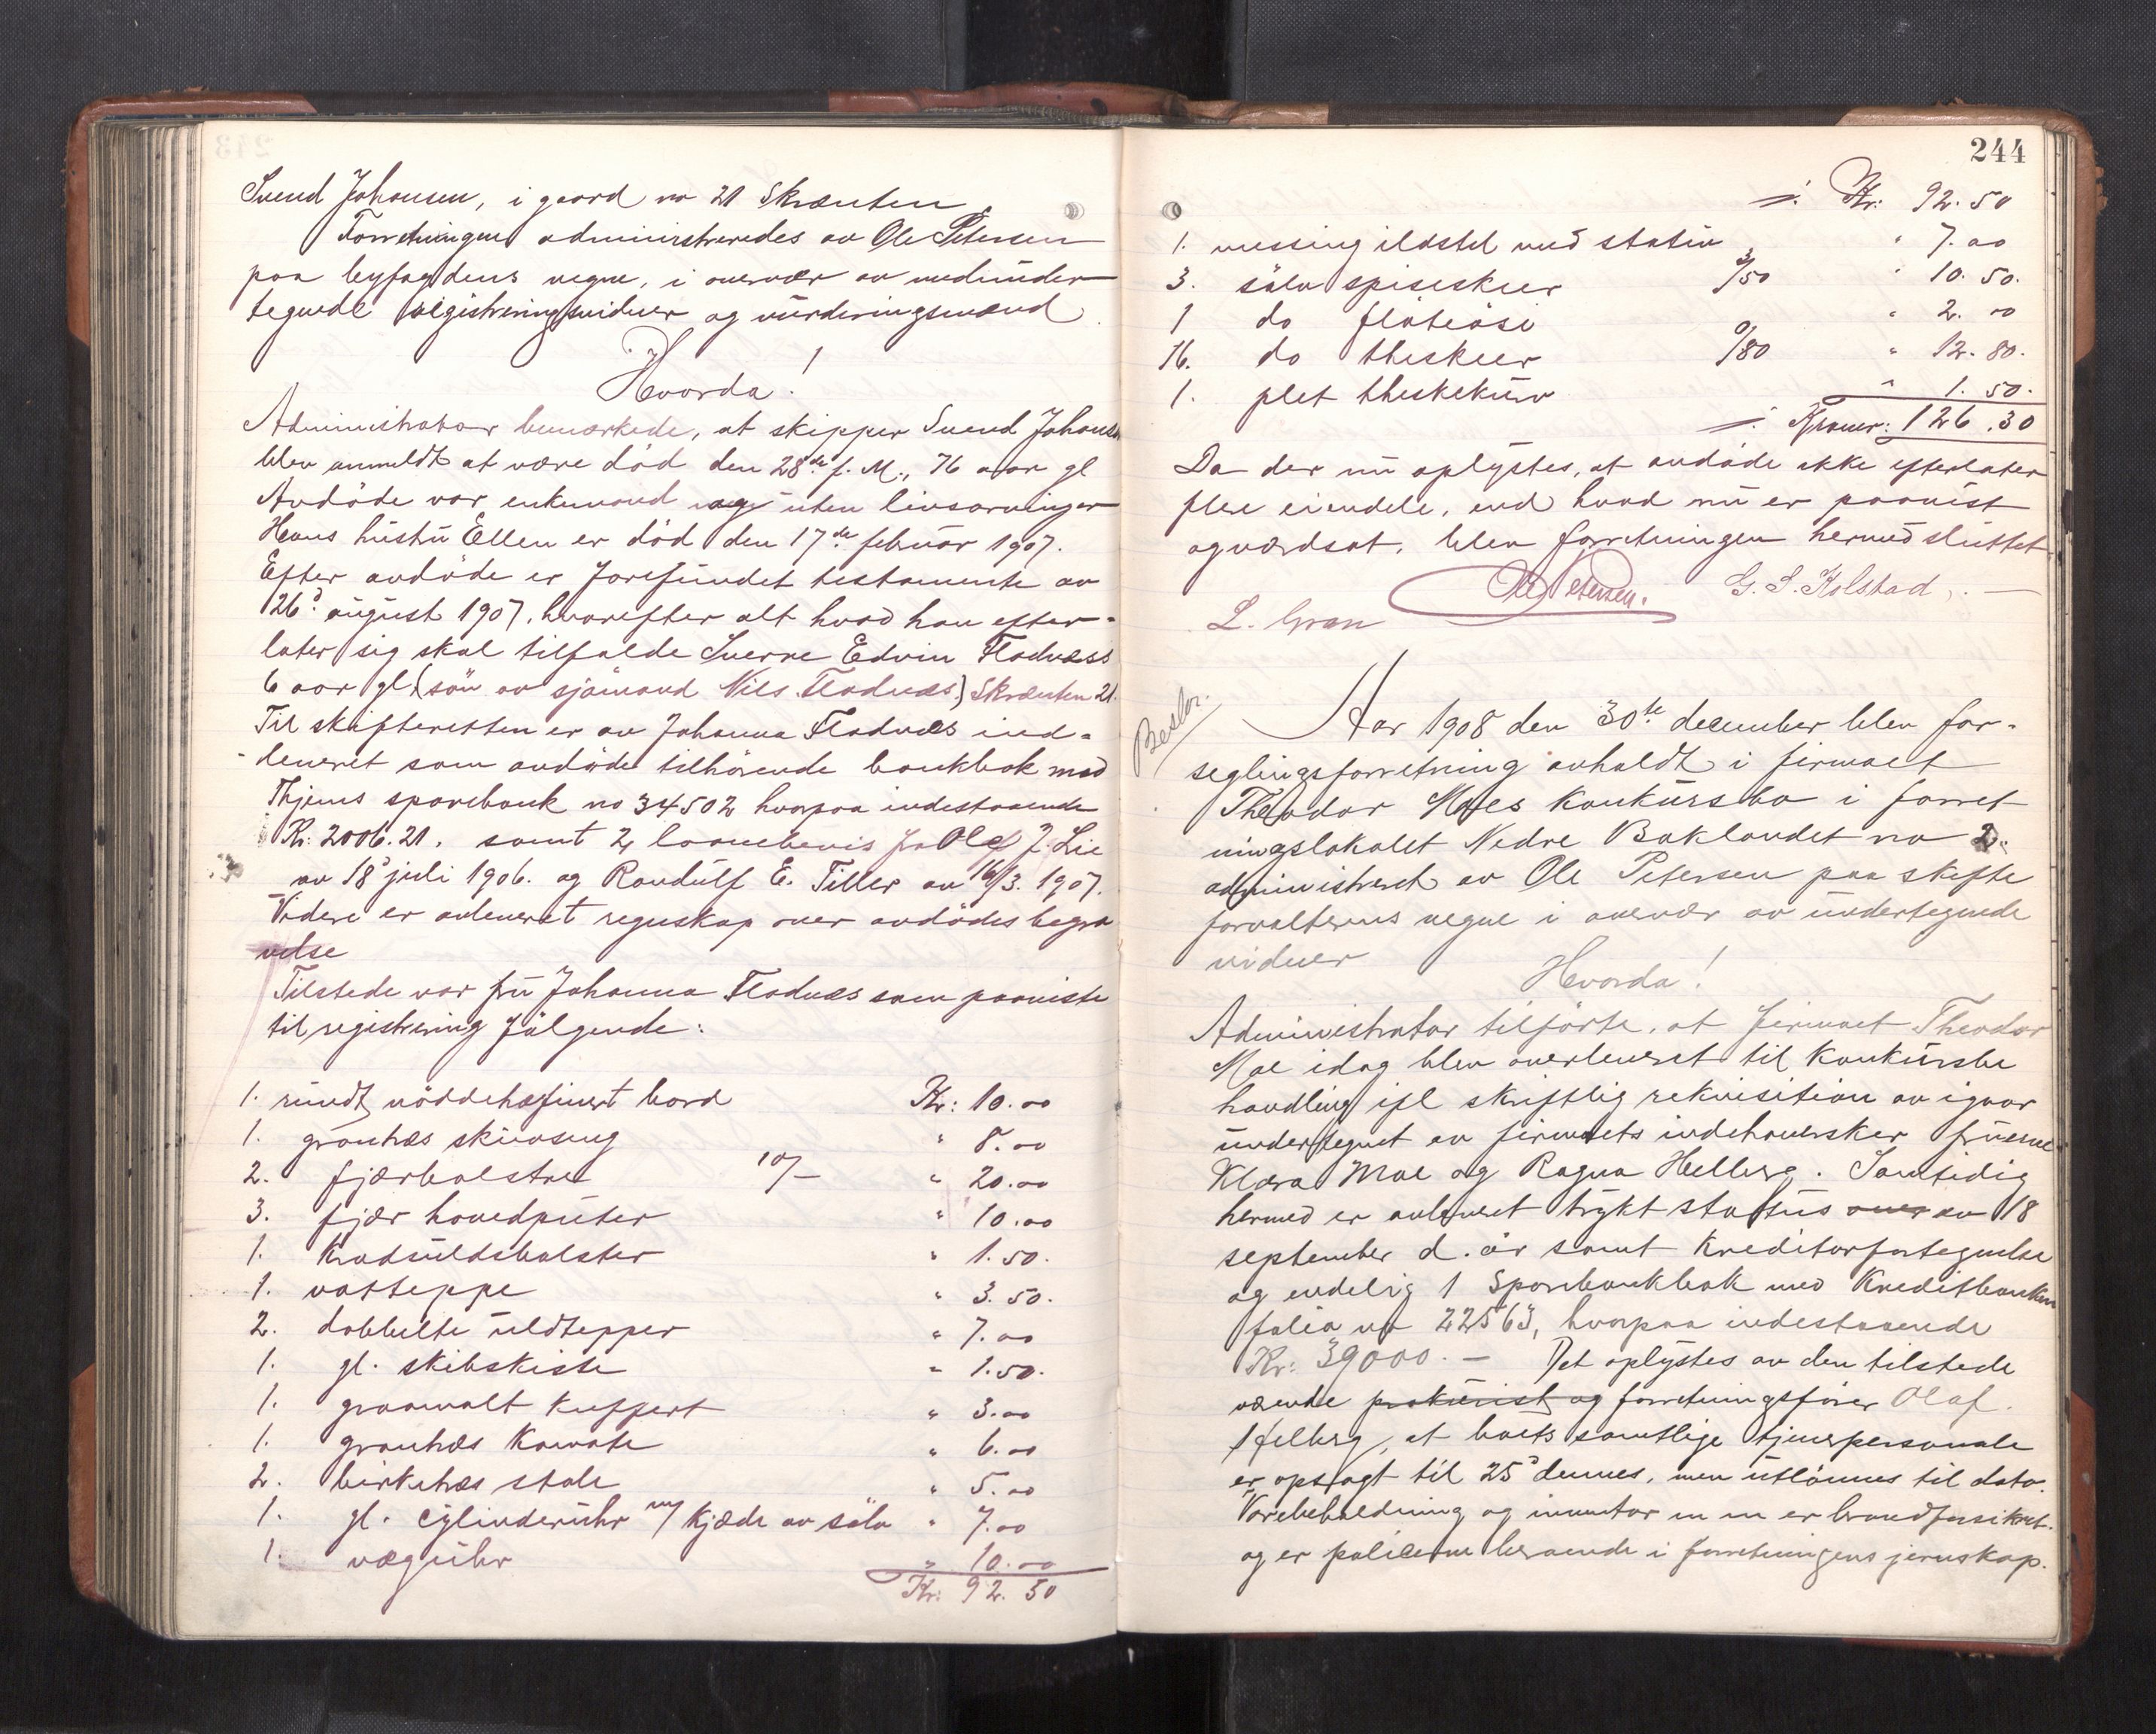 Svend Johansen, i gaard no 21 Skrænten.
Forretningen administreredes av Ole Petersen
paa byfogdens vegne, i overvær av medunder-
tegnede registreringsvidner og vurderingsmænd.
Hvorda!
Administrator bemærkede, at skipper Svend Johansen
blev anmeldt at være död den 28de f. M., 76 aar gl
Avdöde var enkemand og uten livsarvinger
Hans hustru Ellen er död den 17de februar 1907.
Efter avdöde er forefundet testamente av
26d august 1907, hvorefter alt hvad han efter-
later sig skal tilfalde Sverre Edvin Flodnæss
6 aar gl (sön av sjömand Nils Flodnæs) Skrænten 21.
Til skifteretten er av Johanna Flodnæs ind-
leveret som avdöde tilhörende bankbok med
Thjems sparebank no 34502 hvorpaa indestaaende
Kr: 2006.21. samt 2 laanebevis fra Ole J. Lie
av 18d juli 1906. og Randulf E. Tiller av 16/3. 1907.
Videre er avleveret regnskap over avdödes begra
velse
Tilstede var fru Johanna Flodnæs som paaviste
til registrering fölgende:
1. rundt nöddetræfinert bord Kr: 10.00
1. grantræs skuvseng " 8.00
2. fjærbolstre 10/- " 20.00
3. fjær hovedputer " 10.00
1. Krøduldsbolster " 1.50.
1. vatteppe " 3.50.
2. dobbelte uldtepper " 7.00
1. gl. skibskiste " 1.50.
1. graamalt kuffert " 3.00
1. grantræs komode " 6.00
2. birketræs stole " 5.00
1. gl. cylinderuhr m/ kjæde av sölv " 7.00
1. væguhr " 10.00
Kr: 92.50
244
Kr: 92.50
1. messing ildstel med stativ " 7.00
3. sölv spiseskeer 3/50 " 10.50.
1 do flöteöse " 2.00
16. do theskeer 0/80 " 12.80.
1. plet theskekurv " 1.50.
Kroner: 126.30
Da der nu oplystes, at avdöde ikke efterlater
flere eiendele, end hvad nu er paavist
og værdsat, blev forretningen hermed sluttet.
Ole Petersen. G. S. Kolstad.
L. Gran
Aar 1908 den 30te december blev for-
seglingsforretning avholdt i firmaet
Theodor Moes Konkursbo i forret
ningslokalet Nedre Baklandet no 2.
administreret av Ole Petersen paa skifte
forvalterens vegne i overvær av undertegnede
vidner
Hvorda!
Administrator tilförte, at firmaet Theodor
Moe idag blev overleveret til Konkursbe
handling ifl skriftlig rekvisition av igaar
undertegnet av firmaets indehaversker fruerne
Klara Moe og Ragna Helberg. Samtidig
hermed er avleveret trykt status over av 18
september d. år samt Kreditorfortegnelse
og endelig 1 Sparebankbok med Kreditbanken
folio no 22563, hvorpaa indestaaende
Kr: 39000. — Det oplystes av den tilstede
værende prokurist og forretningsförer Olaf
Helberg, at boets samtlige tjenerpersonale
er opsagt til 25d dennes, men utlönnes til dato.
Varebeholdning og inventar m m er brandforsikret.
og er policerne beroende i forretningens jernskap.